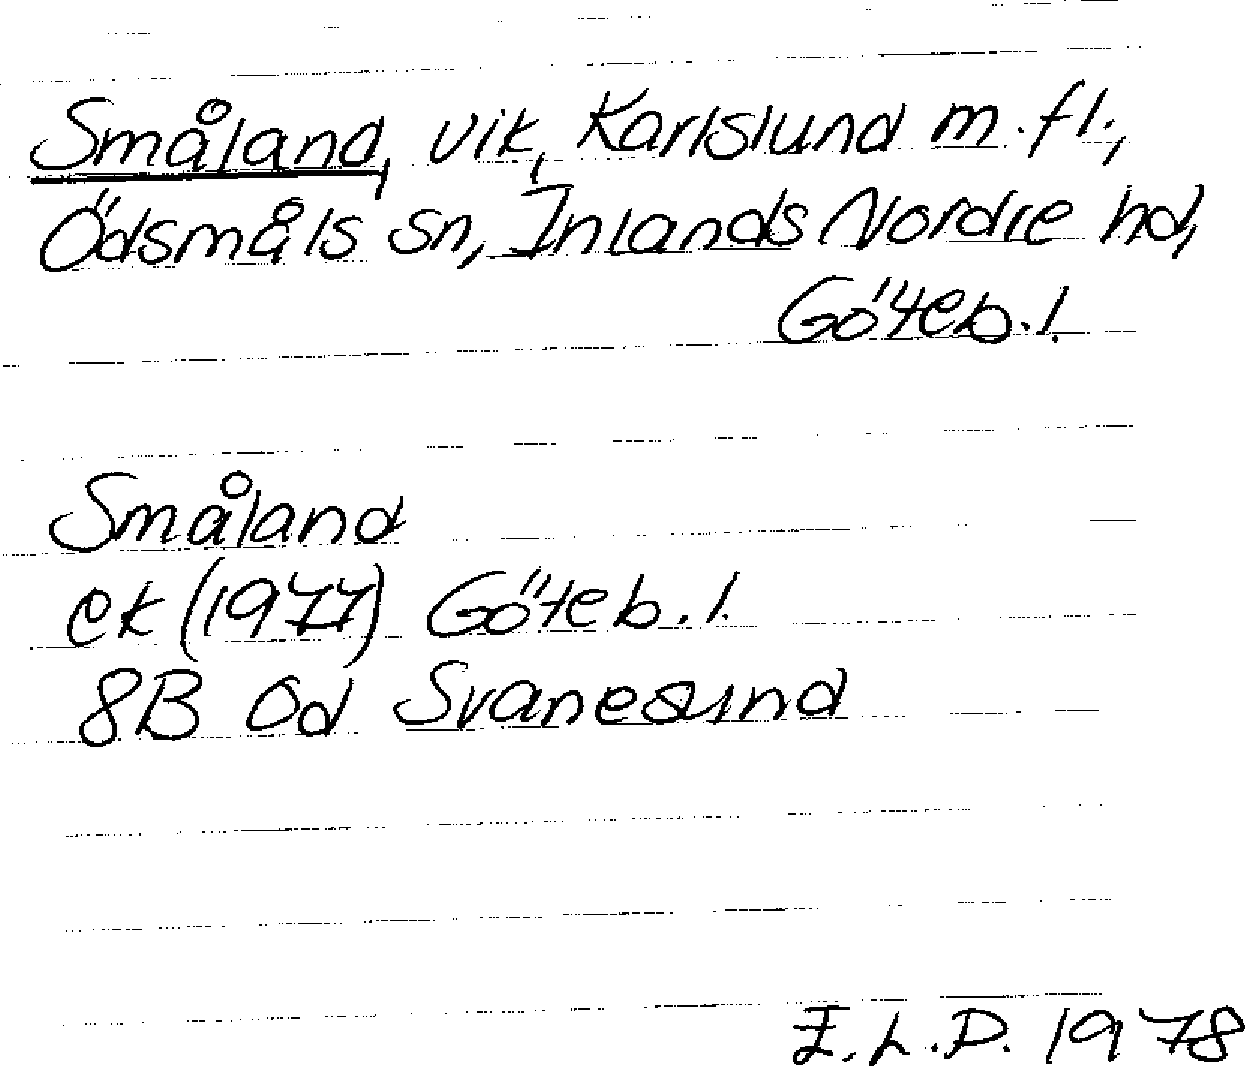 Småland, vik, Karlslund m.fl.,
Ödsmåls sn, Inlands Nordre hd,
Göteb.l.
Småland
ek (1977) Göteb.l.
8B 0d Svanesund
E.L.D. 1978